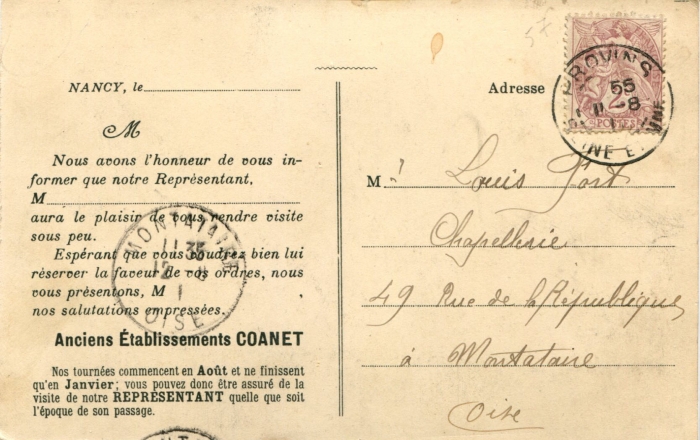 NANCY, le
M
Nous avons l'honneur de vous in-
former que notre Représentant,
M
aura le plaisir de vous rendre visite
sous peu.
Espérant que vous voudrez bien lui
réserver la faveur de vos ordres, nous
vous présentons, M ,
nos salutations empressées.
Anciens Établissements COANET
Nos tournées commencent en Août et ne finissent
qu'en Janvier; vous pouvez donc être assuré de la
visite de notre REPRÉSENTANT quelle que soit
l'époque de son passage.
MONTATAIRE
11 35
12 8
OISE
Adresse
2
POSTES
PROVINS
55
11 8
SEINE ET MARNE
M Louis Fort
Chapellerie
49 Rue de la République
à Montataire
Oise